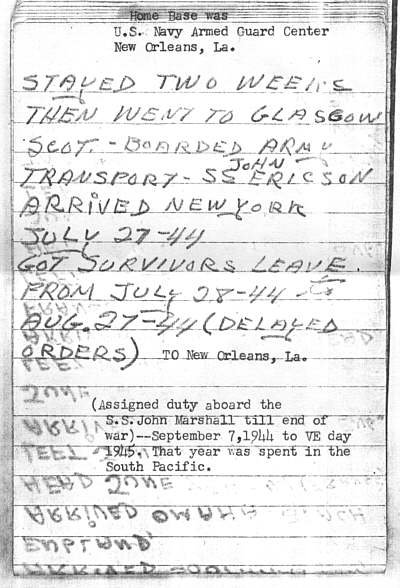 Home Base was
U.S. Navy Armed Guard Center
New Orleans, La.
STAYED TWO WEEKS
THEN WENT TO GLASGOW
SCOT. - BOARDED ARMY
TRANSPORT - SS JOHN ERICSON
ARRIVED NEW YORK
JULY 27-44
GOT SURVIVORS LEAVE.
FROM JULY 28-44 -
AUG. 27-44 (DELAYED
ORDERS) TO New Orleans, La.
(Assigned duty aboard the
S.S. John Marshall till end of
war)--September 7,1944 to VE day
1945. That year was spent in the
South Pacific.
JUNE
ARRIV
LEFT
HEAD JUNE
ARRIVED OMAHA BEACH
ENGLAND,
ARRIVED